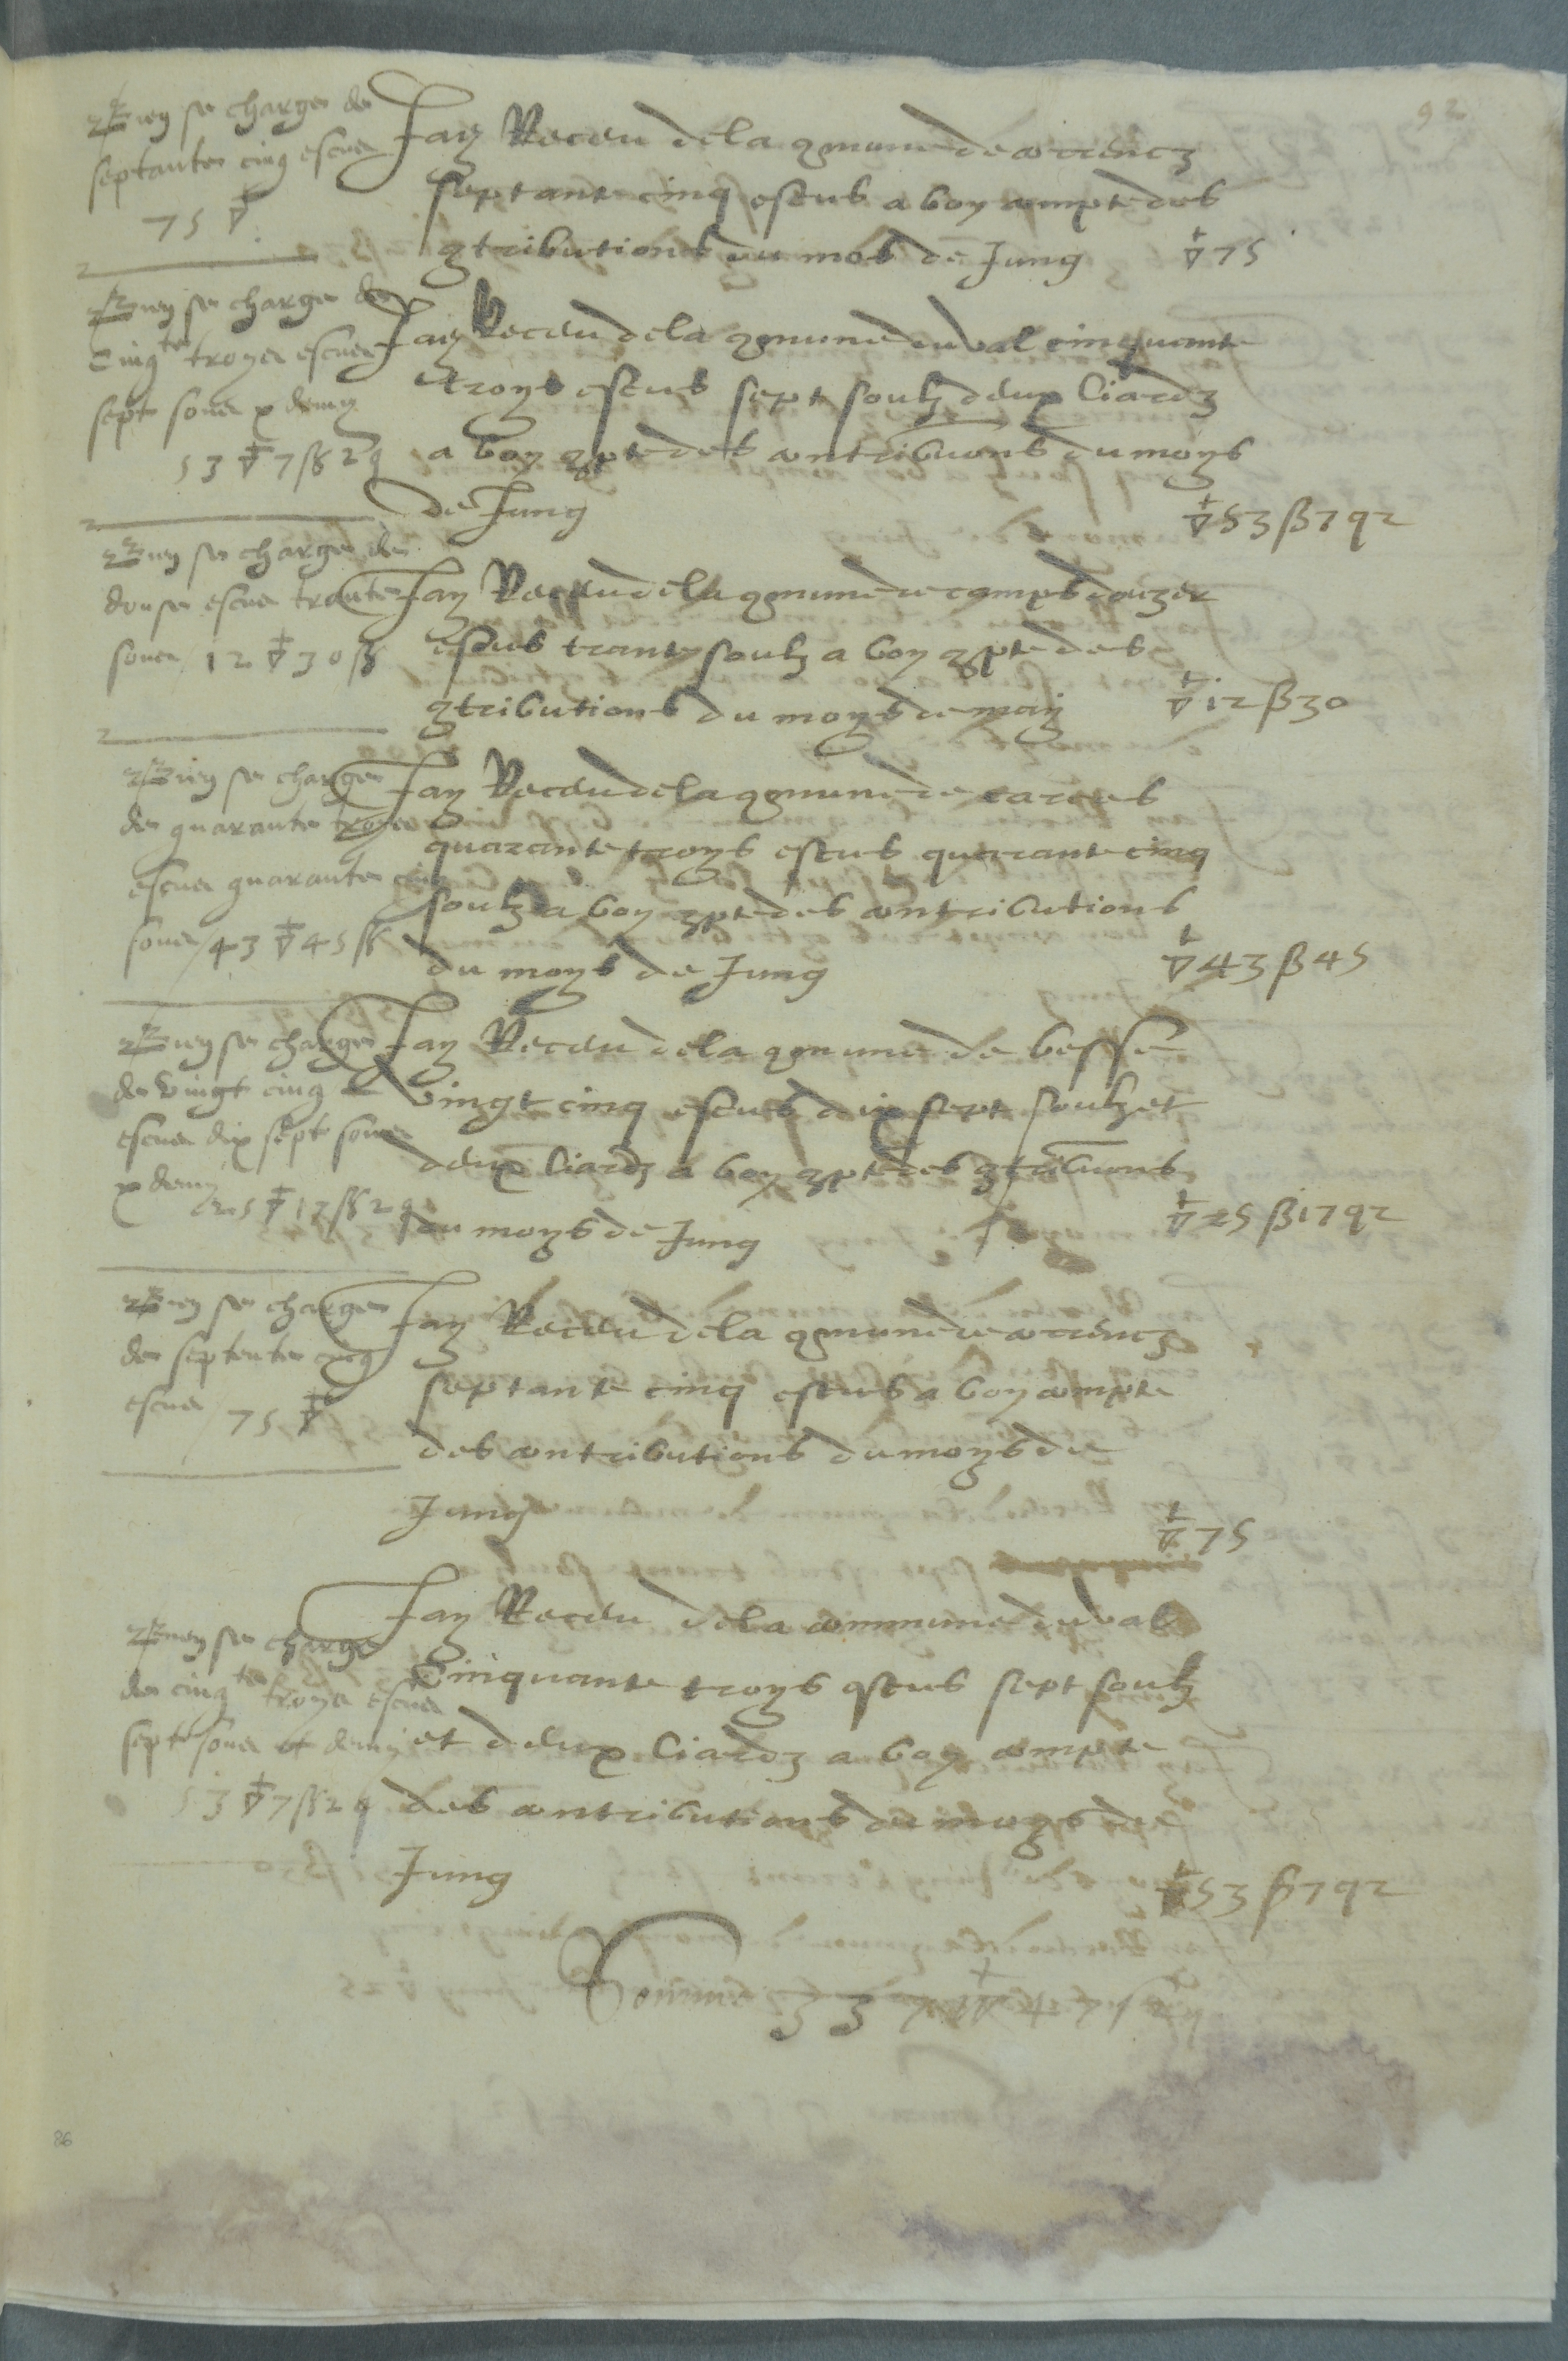 92
ney se charge de
septante cinq escus
75 ▽
Jay Receu de la 9mune de correncz
septante cinq escus a boy compte des
9tributions du mos de Jung ▽ 75
ney se charge de
cinqte troys escus
sept soux et demy
53 ▽ 7 ß 2 q
Jay Receu de la 9mune du val cinquante
troys escus sept soulz deux liardz
a boy 9pte des contribuons du moys
de Jung ▽ 53 ß 7 q 2
ney se charge de
douse escus trante
soux 12 ▽ 30 ß
Jay Receu de la 9mune de camps douze
escus trante soulz a boy 9pte des
9tributions du moys de may ▽ 12 ß 30
ney se charge
de quarante troys
escus quarante cinq
soux 43 ▽ 45 ß
Jay Receu de la 9mune de carces
quarante troys escus quarante cinq
soulz a boy 9pte des contributions
du moys de Jung ▽ 43 ß 45
ney se charge
de vingt cinq
escus dix sept soux
et demy
25 ▽ 17 ß 2 q
Jay Receu de la 9mune de besse
vingt cinq escus dix sept soulz et
deux liardz a boy 9pte des 9tribuons
du moys de Jung ▽ 25 ß 17 q 2
ney se charge
de septente cinq
escus 75 ▽
Jay Receu de la 9mune de correncz
septante cinq escus a boy compte
des contributions du moys de
Jung ▽ 75
ney se charge
de cinqte troys escus
sept soux et demy
53 ▽ 7 ß 2 q
Jay Receu de la commune du val
Cinquante troys escus sept soulz
et deux liardz a boy compte
des contributions du moys de
Jung ▽ 53 ß 7 q 2
Somme 337 ▽ 47 ß 2 q
86